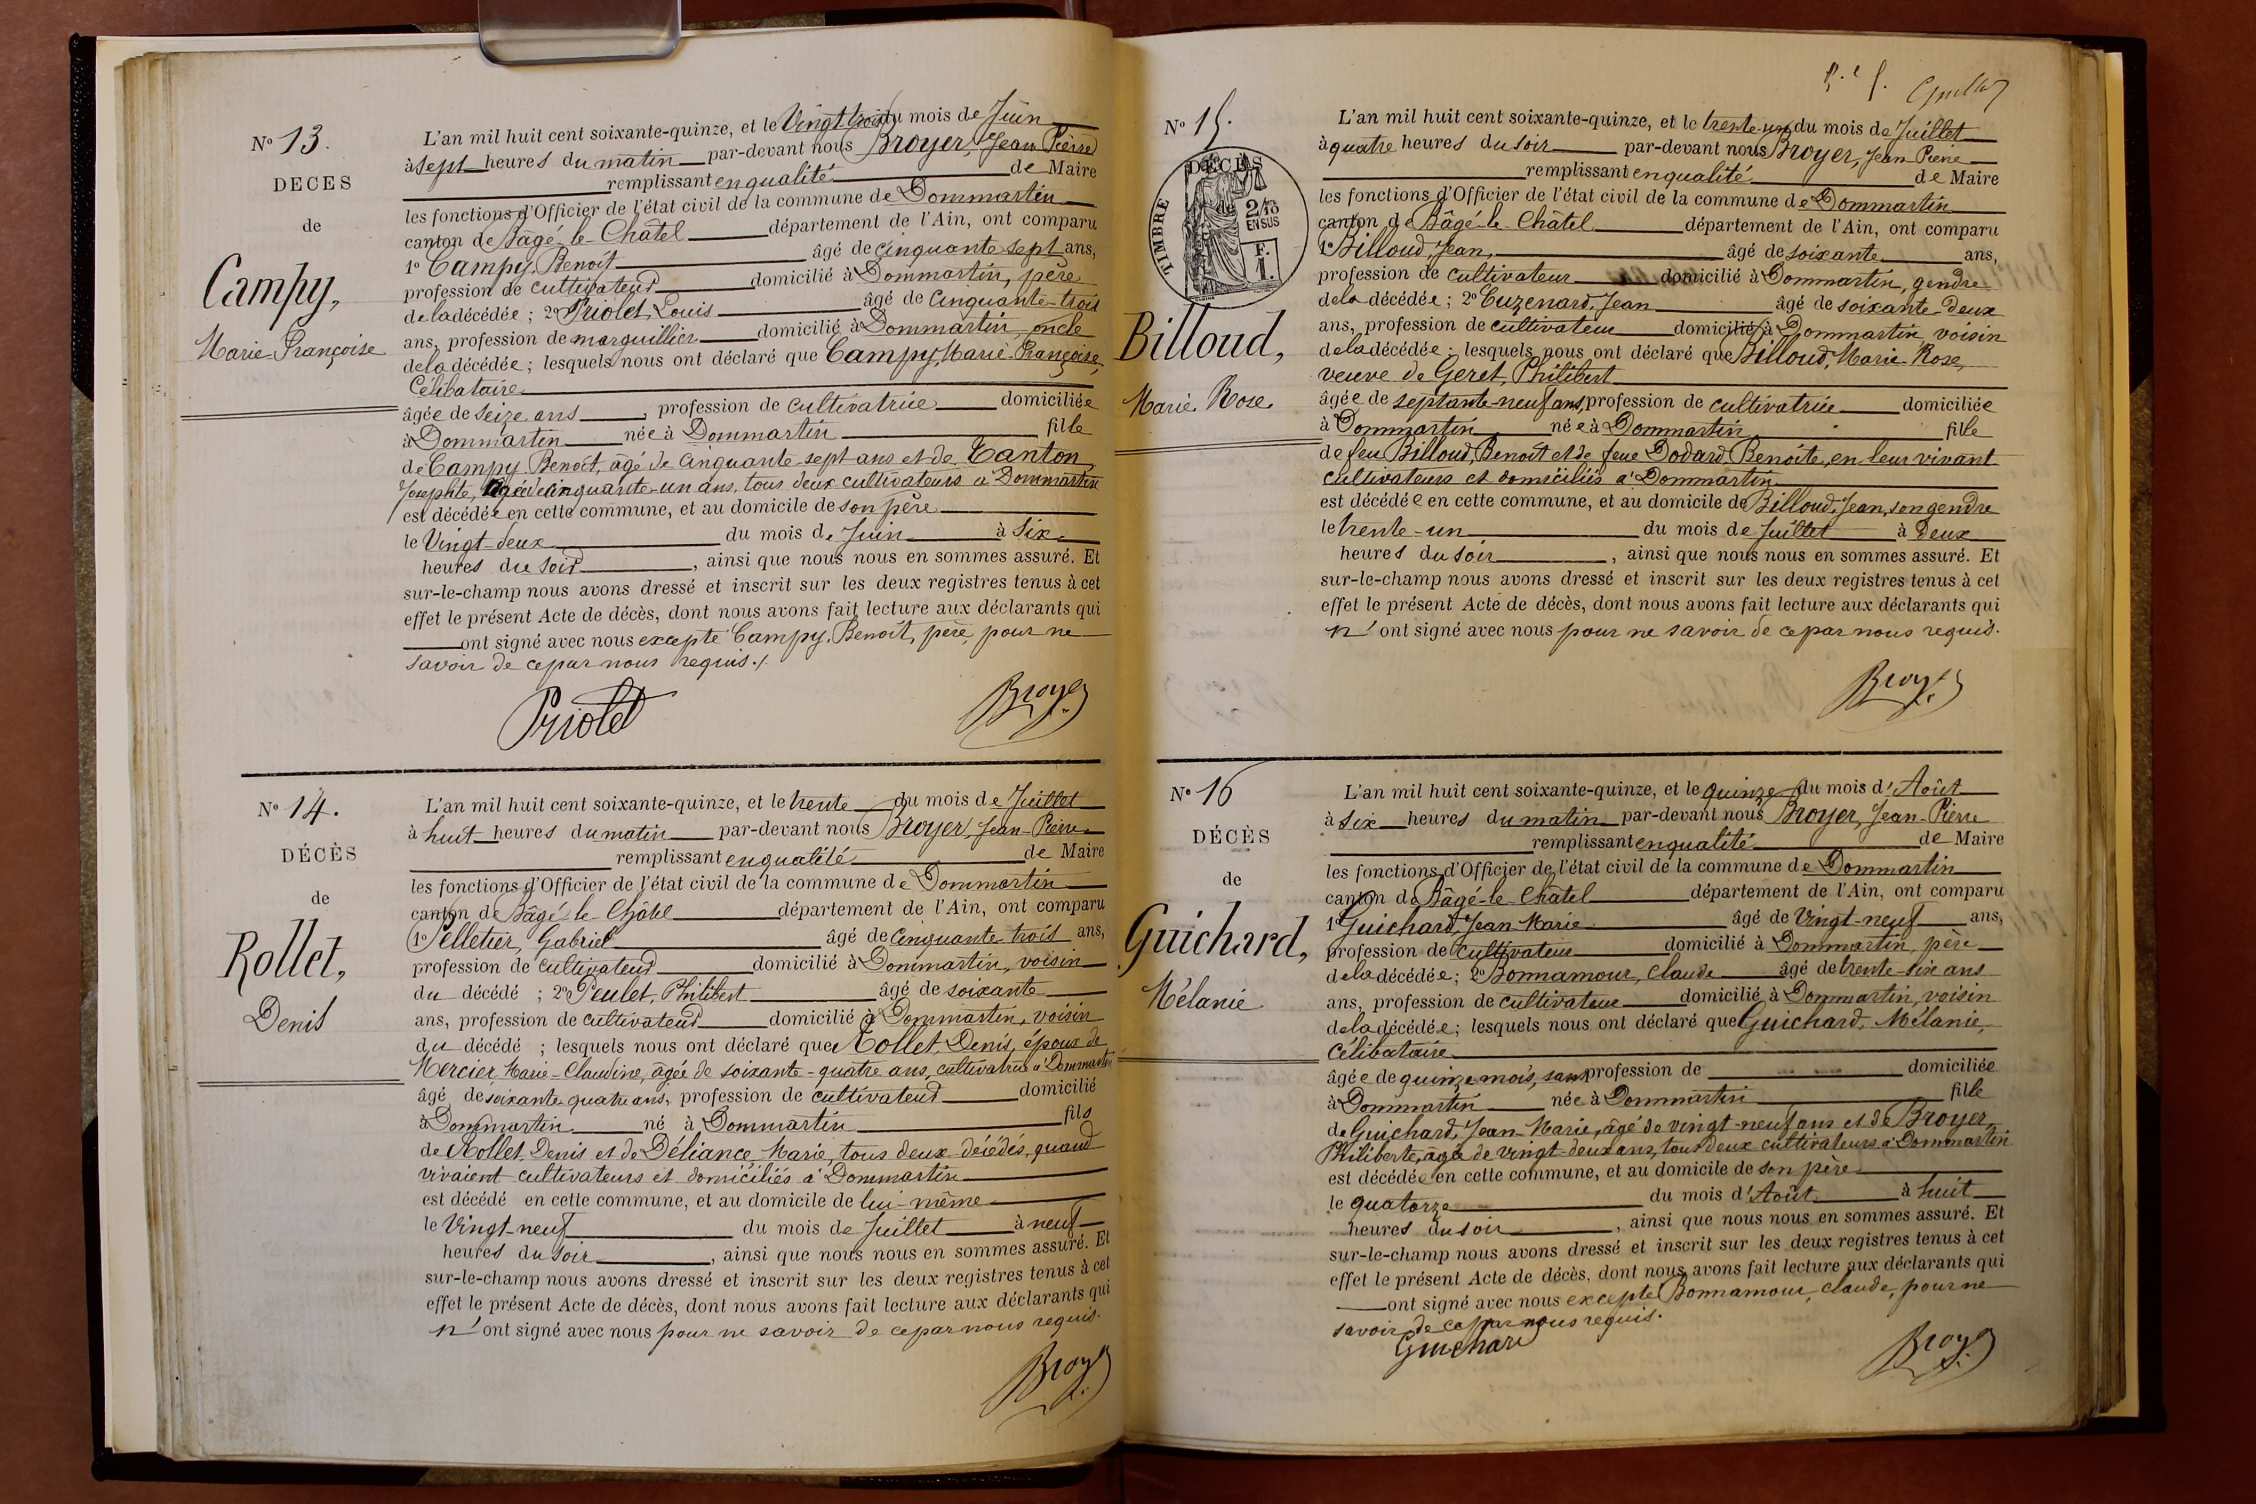 N° 13.
DECES
de
Campy,
Marie Françoise
L'an mil huit cent soixante-quinze, et le Vingt trois du mois de Juin
à sept heures du matin par-devant nous Broyer, Jean Pierre
remplissant en qualité de Maire
les fonctions d'Officier de l'état civil de la commune de Dommartin
canton de Bâgé-le-Châtel département de l'Ain, ont comparu
1° Campy, Benoit âgé de cinquante sept ans,
profession de cultivateur domicilié à Dommartin, père
de la décédée ; 2° Priolet, Louis âgé de cinquante-trois
ans, profession de marguillier domicilié à Dommartin, oncle
de la décédée ; lesquels nous ont déclaré que Campy, Marie-Françoise,
Célibataire
âgée de seize ans, profession de cultivatrice domiciliée
à Dommartin née à Dommartin fille
de Campy Benoit, âgé de cinquante-sept ans et de Tanton,
Josephte, âgée de cinquante-un ans, tous deux cultivateurs à Dommartin
est décédée en cette commune, et au domicile de son père
le Vingt-deux du mois de Juin à Six
heures du soir, ainsi que nous nous en sommes assuré. Et
sur-le-champ nous avons dressé et inscrit sur les deux registres tenus à cet
effet le présent Acte de décès, dont nous avons fait lecture aux déclarants qui
ont signé avec nous excepté Campy, Benoit, père, pour ne
savoir de ce par nous requis./.
Priolet Broyer
N° 14.
DÉCÈS
de
Rollet,
Denis
L'an mil huit cent soixante-quinze, et le trente du mois de Juillet
à huit heures du matin par-devant nous Broyer, Jean-Pierre
remplissant en qualité de Maire
les fonctions d'Officier de l'état civil de la commune de Dommartin
canton de Bâgé-le-Châtel département de l'Ain, ont comparu
1° Pelletier, Gabriel âgé de cinquante-trois ans,
profession de cultivateur domicilié à Dommartin, voisin
du décédé ; 2° Peulet, Philibert âgé de soixante
ans, profession de cultivateur domicilié à Dommartin, voisin
du décédé ; lesquels nous ont déclaré que Rollet, Denis, époux de
Mercier, Marie-Claudine, âgée de soixante-quatre ans, cultivatrice à Dommartin
âgé de soixante quatre ans, profession de cultivateur domicilié
à Dommartin né à Dommartin fils
de Rollet, Denis et de Déliance, Marie, tous deux décédés, quand
vivaient cultivateurs et domiciliés à Dommartin
est décédé en cette commune, et au domicile de lui-même
le Vingt-neuf du mois de Juillet à neuf
heures du soir, ainsi que nous nous en sommes assuré. Et
sur-le-champ nous avons dressé et inscrit sur les deux registres tenus à cet
effet le présent Acte de décès, dont nous avons fait lecture aux déclarants qui
n'ont signé avec nous pour ne savoir de ce par nous requis.
Broyer
N° 15.
DÉCÈS
TIMBRE
2/10 EN SUS
F. 1.
Billoud,
Marie Rose
L'an mil huit cent soixante-quinze, et le trente-un du mois de Juillet
à quatre heures du soir par-devant nous Broyer, Jean Pierre
remplissant en qualité de Maire
les fonctions d'Officier de l'état civil de la commune de Dommartin
canton de Bâgé-le-Châtel département de l'Ain, ont comparu
1° Billoud, Jean, âgé de soixante ans,
profession de cultivateur domicilié à Dommartin, gendre
de la décédée ; 2° Cuzenard, Jean âgé de soixante-deux
ans, profession de cultivateur domicilié à Dommartin, voisin
de la décédée ; lesquels nous ont déclaré que Billoud, Marie-Rose,
veuve de Geret, Philibert
âgée de septante-neuf ans, profession de cultivatrice domiciliée
à Dommartin née à Dommartin fille
de feu Billoud, Benoit et de feue Dodard, Benoîte, en leur vivant
cultivateurs et domiciliés à Dommartin
est décédée en cette commune, et au domicile de Billoud, Jean, son gendre
le trente-un du mois de Juillet à Deux
heures du soir, ainsi que nous nous en sommes assuré. Et
sur-le-champ nous avons dressé et inscrit sur les deux registres tenus à cet
effet le présent Acte de décès, dont nous avons fait lecture aux déclarants qui
n'ont signé avec nous pour ne savoir de ce par nous requis.
Broyer
N° 16
DÉCÈS
de
Guichard,
Mélanie
L'an mil huit cent soixante-quinze, et le quinze du mois d'Août
à six heures du matin par-devant nous Broyer, Jean-Pierre
remplissant en qualité de Maire
les fonctions d'Officier de l'état civil de la commune de Dommartin
canton de Bâgé-le-Châtel département de l'Ain, ont comparu
1° Guichard, Jean-Marie âgé de Vingt-neuf ans,
profession de cultivateur domicilié à Dommartin, père
de la décédée ; 2° Bonnamour, Claude âgé de trente-six ans
ans, profession de cultivateur domicilié à Dommartin, voisin
de la décédée ; lesquels nous ont déclaré que Guichard, Mélanie,
Célibataire
âgée de quinze mois, sans profession de domiciliée
à Dommartin née à Dommartin fille
de Guichard, Jean-Marie, âgé de vingt-neuf ans et de Broyer,
Philiberte, âgée de vingt-deux ans, tous deux cultivateurs à Dommartin
est décédée en cette commune, et au domicile de son père
le quatorze du mois d'Août à huit
heures du soir, ainsi que nous nous en sommes assuré. Et
sur-le-champ nous avons dressé et inscrit sur les deux registres tenus à cet
effet le présent Acte de décès, dont nous avons fait lecture aux déclarants qui
ont signé avec nous excepté Bonnamour, Claude, pour ne
savoir de ce par nous requis.
Guichard Broyer